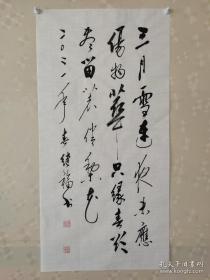 三月雪連夜未應
傷物華只緣春欲
盡留着伴梨花
二〇二一年 福書